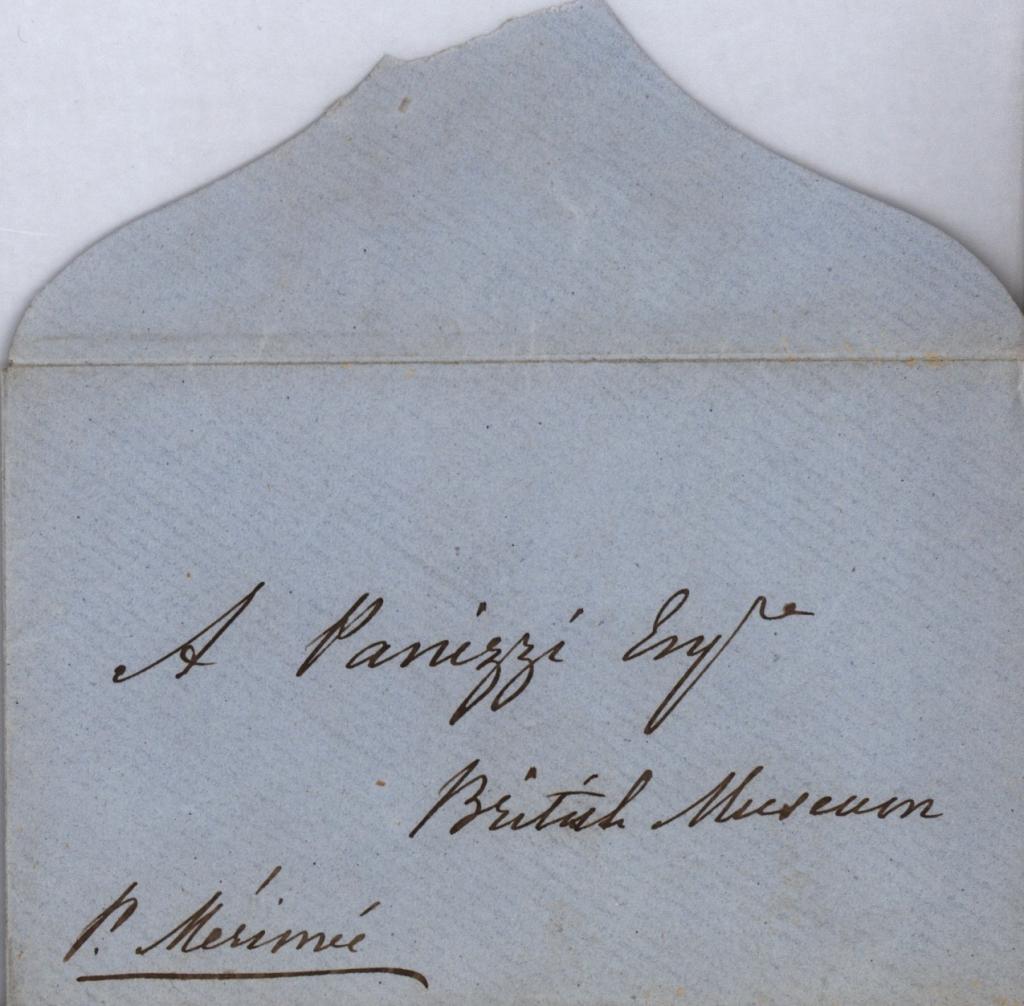 A Panizzi Esqre
British Museum
P. Mérimée